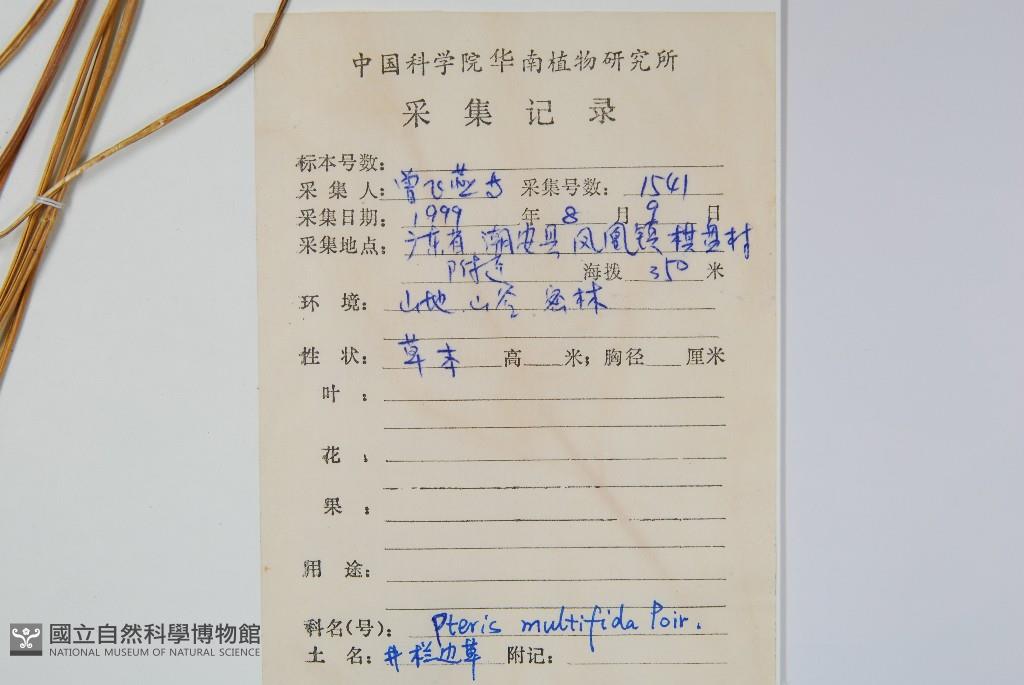 中国科学院华南植物研究所
采集记录
标本号数:
采集人: 曾飞燕等 采集号数: 1541
采集日期: 1999 年 8 月 9 日
采集地点: 广东省潮安县凤凰镇棋盘村
附近 海拨 350 米
环境: 山地 山谷 密林
性状: 草本 高 米; 胸径 厘米
叶:
花:
果:
用途:
科名(号): Pteris multifida Poir.
土名: 井栏边草 附记:
國立自然科學博物館
NATIONAL MUSEUM OF NATURAL SCIENCE